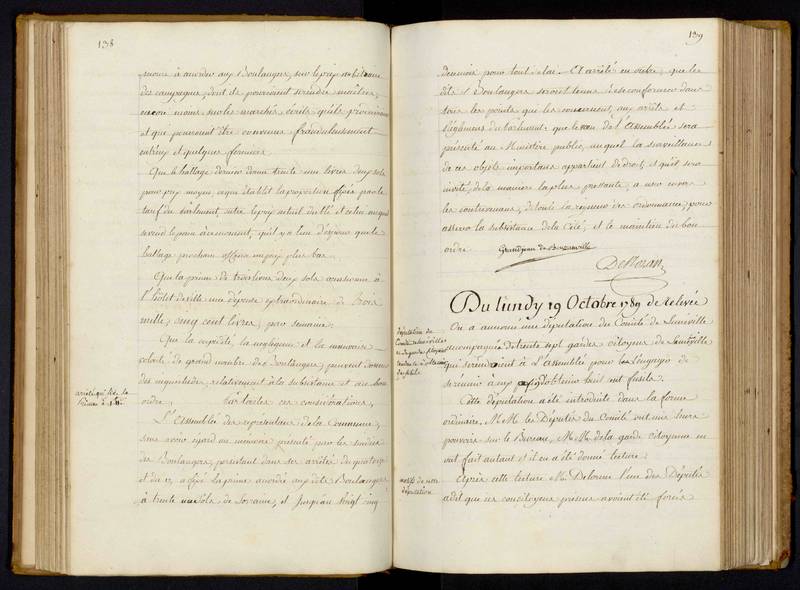 138
prime à accorder aux Boulangers, sur le prix des
des campagnes, dont ils pourroient se rendre maîtres,
encore moins sur les marchés civils qu'ils
et que pourroient être convenus frauduleusement
entr'eux et quelques fermiers.
Que le hallage dernier donne trente une livres deux sols
pour prix moyen, ce qui établit la proportion fixée par le
tarif du Parlement, entre le prix actuel du blé et celui auquel
se vend le pain en ce moment; qu'il y a lieu d'espérer que le
hallage prochain offrira un prix plus bas.
Que la prime de trois livres deux sols occasionne à
l'hôtel de ville une dépense extraordinaire de trois
mille, cinq cent livres, par semaine.
Que la cupidité, la négligence et la mauvaise
volonté de grand nombre de Boulangers, peuvent donner
des inquiétudes, relativement à la subsistance et au bon
ordre, par toutes ces considérations,
arrêté qui fixe la
prime à
L'Assemblée des représentans de la Commune,
sans avoir égard au mémoire présenté par les sindics
des Boulangers, persistant dans ses arrêtés du quatorze
et du 17, a fixé la prime accordée aux dits Boulangers
à trente un sols de Lorraine, et jusqu'au vingt cinq
139
du mois pour tout délai. Et arrêté en outre, que les
dits Boulangers seroient tenus de se conformer dans
tous les points qui les concernent, aux arrêts et
règlemens du Parlement: que le vœu de l'Assemblée sera
présenté au Ministère public, auquel la surveillance
de ces objets importans appartient de droit, et qu'il sera
invité, de la manière la plus pressante, à user envers
les contrevenans, de toute la rigueur des ordonnances, pour
assurer la subsistance de la Cité, et le maintien du bon
ordre. Grandjean de Bouzanville
Du Lundy 19 Octobre 1789 de Relevée
députation du
Comité de Lunéville
On a annoncé une députation du Comité de Lunéville
accompagnée de trente sept gardes citoyens de Lunéville
qui se rendoient à l'Assemblée pour l'engager de
huit cent fusils.
Cette députation a été introduite dans la forme
ordinaire, M.M. les Députés du Comité ont mis leurs
pouvoirs sur le Bureau, M.M. de la garde Citoyenne en
ont fait autant et il en a été donné lecture.
motifs de cette
députation
Après cette lecture M. Delorme l'un des Députés
a dit que ses concitoyens présens avoient été forcés